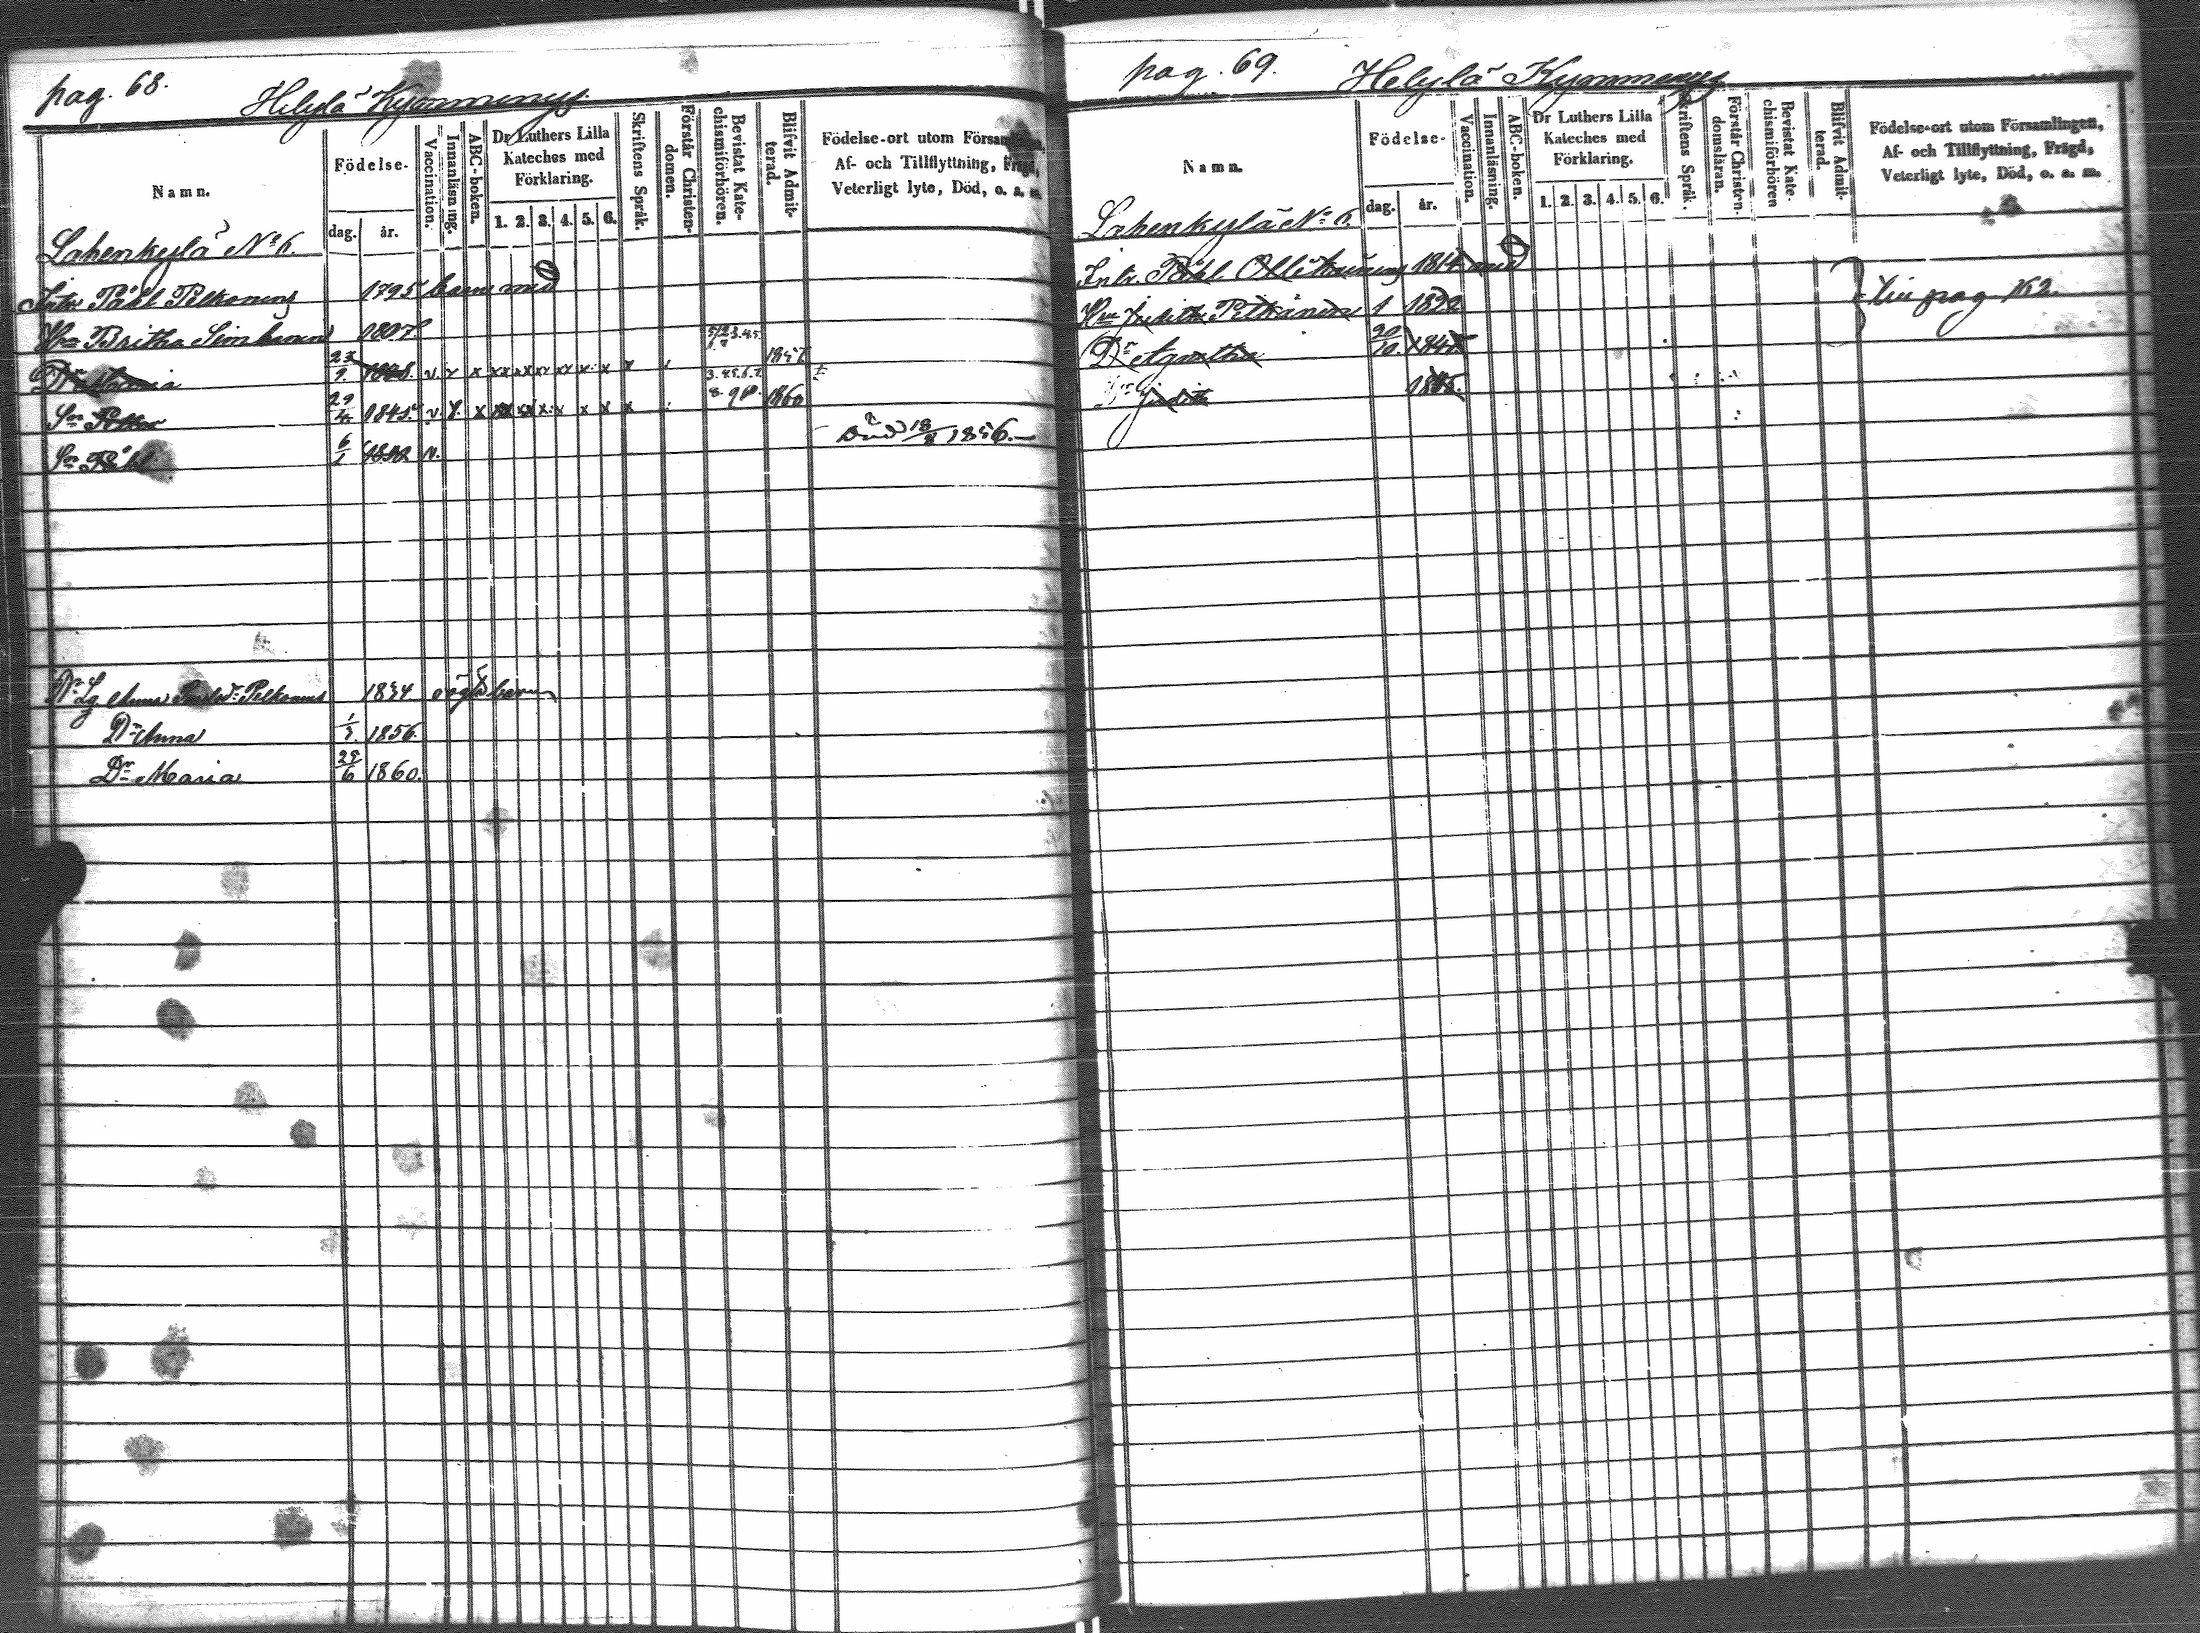 pag. 68.
Helylä Kymmenys.
Namn.
Födelse-
dag.
år.
Vaccination.
Innanläsning.
ABC-boken.
Dr Luthers Lilla
Kateches med
Förklaring.
1. 2. 3. 4. 5. 6.
Skriftens Språk.
Förstår Christen-
domen.
Bevistat Kate-
chismiförhören.
Blifvit Admit-
terad.
Födelse-ort utom Församlingen,
Af- och Tillflyttning, Frägd,
Veterligt lyte, Död, o. a. m.
Lahenkylä No 6.
Inh. Påhl Pelkonens 1795 barn med
Hu Britha Simonen 1807
23/9 v. x x x x x x x x x 1857
Sn Petter 29/4 1845 v. x x x x x x x x x 8. 9 1860
Sn Påhl 6/1 v. död 18/8 1856.
Dr Lg Anna Pelkonens 1834 oägta barn
Dr Anna 1856.
Dr Maria 29/6 1860.
pag. 69.
Helylä Kymmenys
Namn.
Födelse-
dag.
år.
Vaccination.
Innanläsning.
ABC-boken.
Dr Luthers Lilla
Kateches med
Förklaring.
1. 2. 3. 4. 5. 6.
Skriftens Språk.
Förstår Christen-
domslaran.
Bevistat Kate-
chismiförhören
Blifvit Admit-
terad.
Födelse-ort utom Församlingen,
Af- och Tillflyttning, Frägd,
Veterligt lyte, Död, o. a. m.
Lahenkylä No 6.
Inh. Påhl Ollikainens 1814 med
Hu Judith Pitkänen
Dr Agatha 20/10.
Dr Judith
pag. 162.